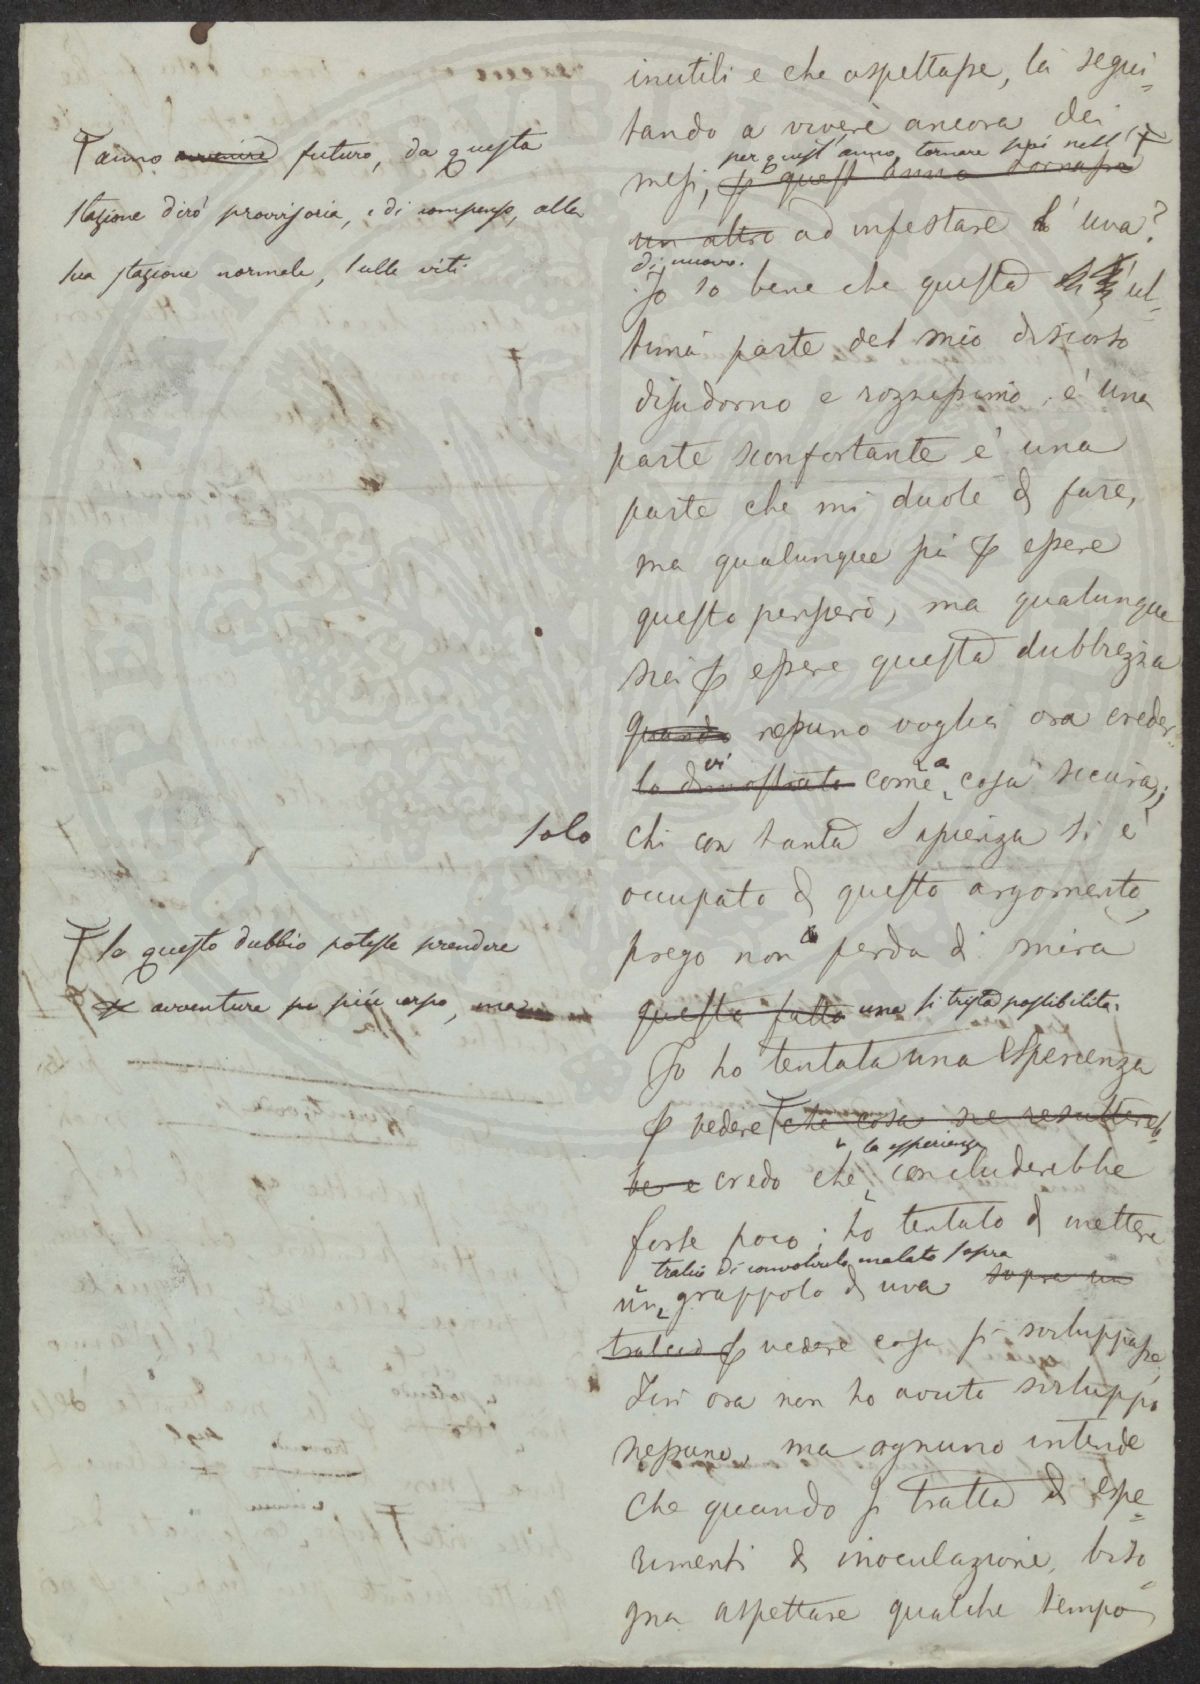 inutili e che aspettasse, la segui-
tando a vivere ancora dei
per quest'anno, tornare poi nell'
mesi, quest' anno tornasse
un altro ad infestare l'uva?
di nuovo.
Io so bene che questa ul-
tima parte del mio discorso
disadorno e rozzissimo, è una
parte sconfortante è una
parte che mi duole di fare,
ma qualunque sia p essere
questo pensiero, ma qualunque
sia p essere questa dubbiezza
quando nessuno voglia ora creder
vi a
lo dimostrato come cosa sicura;
solo chi con tanta sapienza si è
occupato di questo argomento,
prego non perda di mira
questo fatto una sì trista possibilità.
Io ho tentata una esperienza
p vedere che cosa ne resultereb-
la esperienza
be e credo che concluderebbe
forse poco; ho tentato di mettere
tralcio di convolvulo malato sopra
un grappolo di uva sopra un
tralcio p vedere cosa si sviluppasse,
Fin ora non ho avuto sviluppo
nessuno, ma ognuno intende
che quando si tratta di espe-
rimenti di inoculazione, biso-
gna aspettare qualche tempo
anno avvenire futuro, da questa
stagione dirò provvisoria, e di compenso, alla
sua stagione normale, sulle viti
se questo dubbio potesse prendere
avventura più corpo, ma